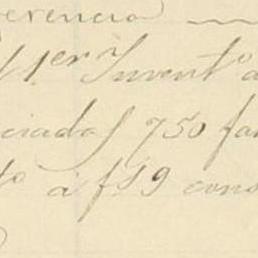 erencia
1.er Invent.o a
ciadas 750 fa
to á f 59 cons